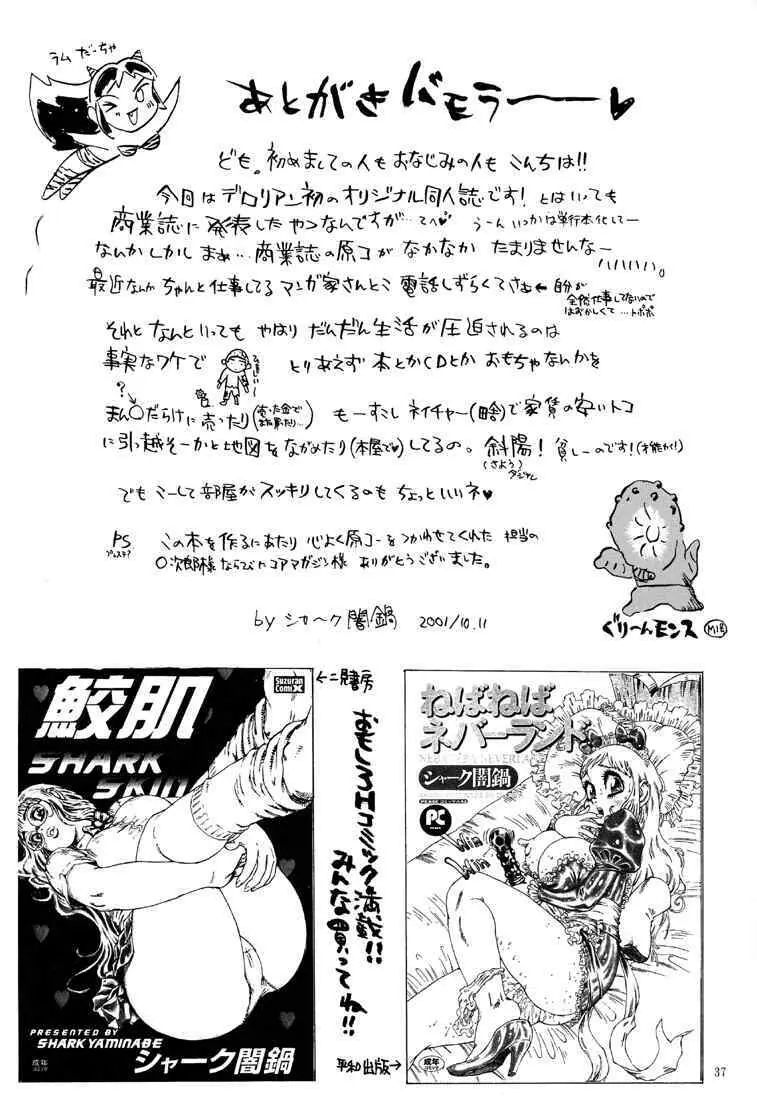 ラムだーちゃ
あとがきバモラーー♥
ども。初めましての人もおなじみの人も こんちは!!
今回はデロリアン初のオリジナル同人誌です! とはいっても
商業誌に発表したやつなんですが…てへ♥ うーん いつかは単行本化してー
なんかしかし まぁ…商業誌の原コが なかなか たまりませんなー
ハハハハハ。
最近なんか ちゃんと仕事してる マンガ家さんとこ 電話しずらくてさぁ←自分が
全然仕事してないので
はずかしくて…トポポ
それと なんといっても やはり だんだん生活が圧迫されるのは
事実なワケで とりあえず 本とかCDとか おもちゃなんかを
?
まん○だらけに売ったり(売った金で
もーすこし ネイチャー(略)で家賃の安いトコ
に引っ越そーかと地図をながめたり(本屋で♥)してるの。斜陽! 貧しーのです!(才能が!)
(さよう)
でもこーして部屋がスッキリしてくるのも ちょっといいネ♥
PS この本を作るにあたり 心よく原コーをつかわせてくれた 担当の
プレステ?
○次郎様ならびにコアマガジン様 ありがとうございました。
by シャーク闇鍋 2001/10.11
ぐりーんモンス
M1号
鮫肌
SHARK
SKIN
Suzuran
ComiX
PRESENTED BY
SHARK YAMINABE
シャーク闇鍋
成年
コミック
←二見書房
おもしろHコミック満載!!
みんな買ってね!!
平和出版→
ねばねば
ネバーランド
シャーク闇鍋
PC
Win
Win
成年
コミック
37